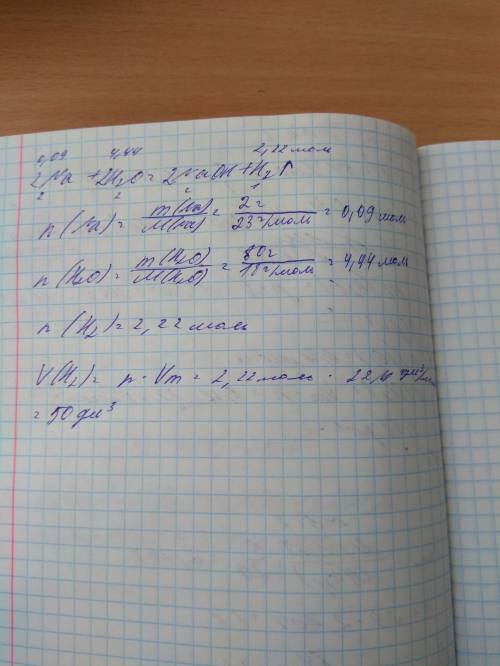 0,09 4,44 2,22 моль
2Na + 2H₂O = 2NaOH + H₂↑
2 2 2 1
n(Na) = m(Na)/M(Na) = 2г/23г/моль = 0,09 моль
n(H₂O) = m(H₂O)/M(H₂O) = 80г/18г/моль = 4,44 моль
n(H₂) = 2,22 моль
V(H₂) = n · Vm = 2,22 моль · 22,4 дм³/моль
= 50 дм³